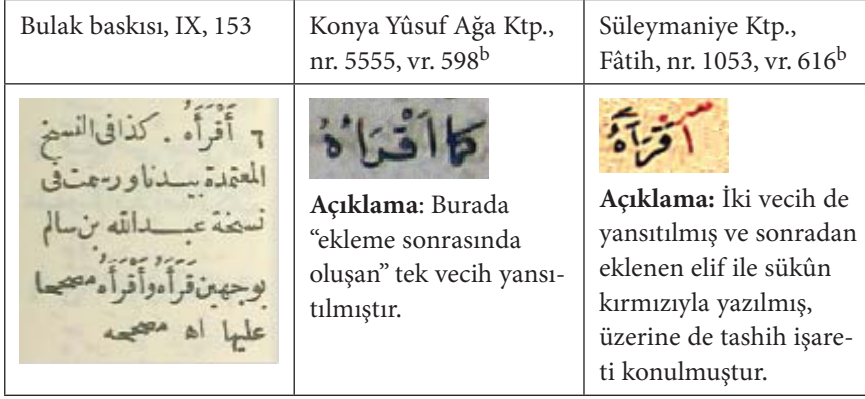 Bulak baskısı, IX, 153
Konya Yûsuf Ağa Ktp.,
nr. 5555, vr. 598b
Süleymaniye Ktp.,
Fâtih, nr. 1053, vr. 616b
٦ أَقْرَأَهُ . كذا فى النسخ
المعتمدة بيدنا ورسمت فى
نسخة عبد الله بن سالم
بوجهين قَرَأَهُ وأَقْرَأَهُ مصححا
عليها اه مصححه
كما اَقْرَاَهُ
Açıklama: Burada
“ekleme sonrasında
oluşan” tek vecih yansı-
tılmıştır.
Açıklama: İki vecih de
yansıtılmış ve sonradan
eklenen elif ile sükûn
kırmızıyla yazılmış,
üzerine de tashih işare-
ti konulmuştur.